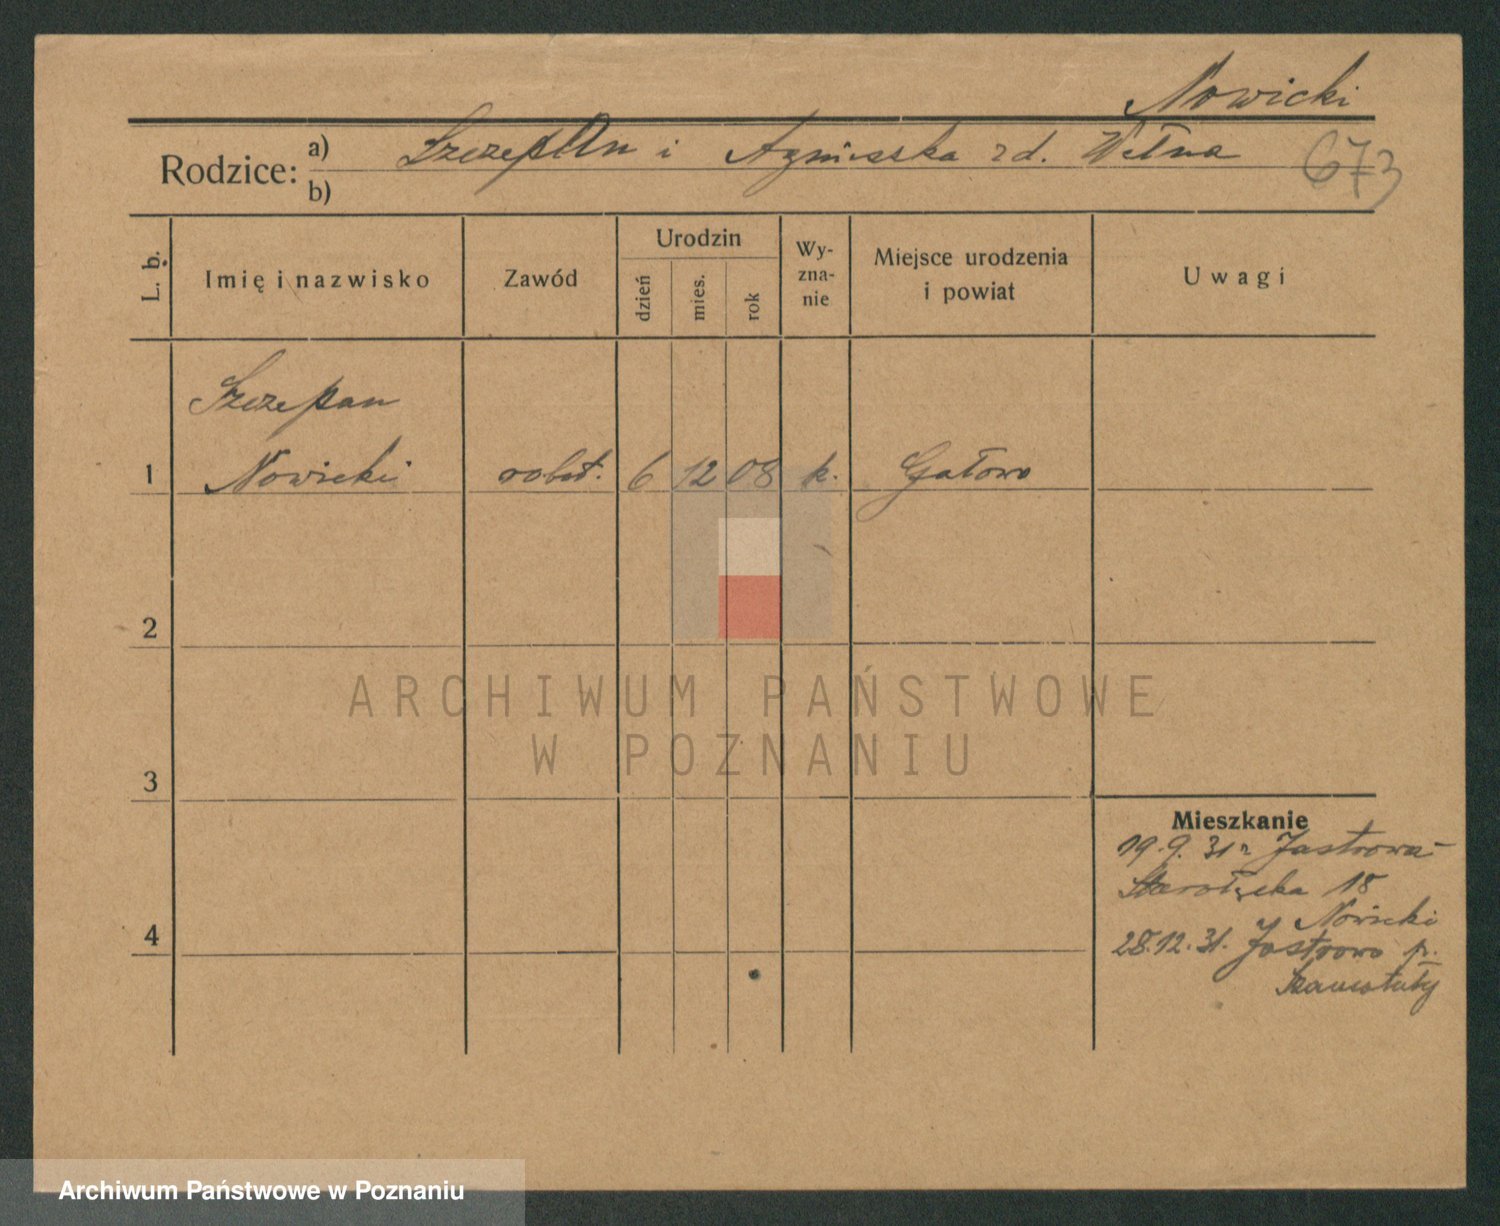 Nowicki
Rodzice: a) Szczepan i Agnieszka zd. Wełna 673
b)
L. b.
Imię i nazwisko
Zawód
Urodzin
dzień
mies.
rok
Wy-
zna-
nie
Miejsce urodzenia
i powiat
Uwagi
Szczepan
1 Nowicki robot. 6 12 08 k. Gałowo
2
3
4
Mieszkanie
19.9.31 r Jastrowa
Starołęcka 18
Nowicki
28.12.31. Jastrowo p.
Szamotuły
ARCHIWUM PAŃSTWOWE
W POZNANIU
Archiwum Państwowe w Poznaniu